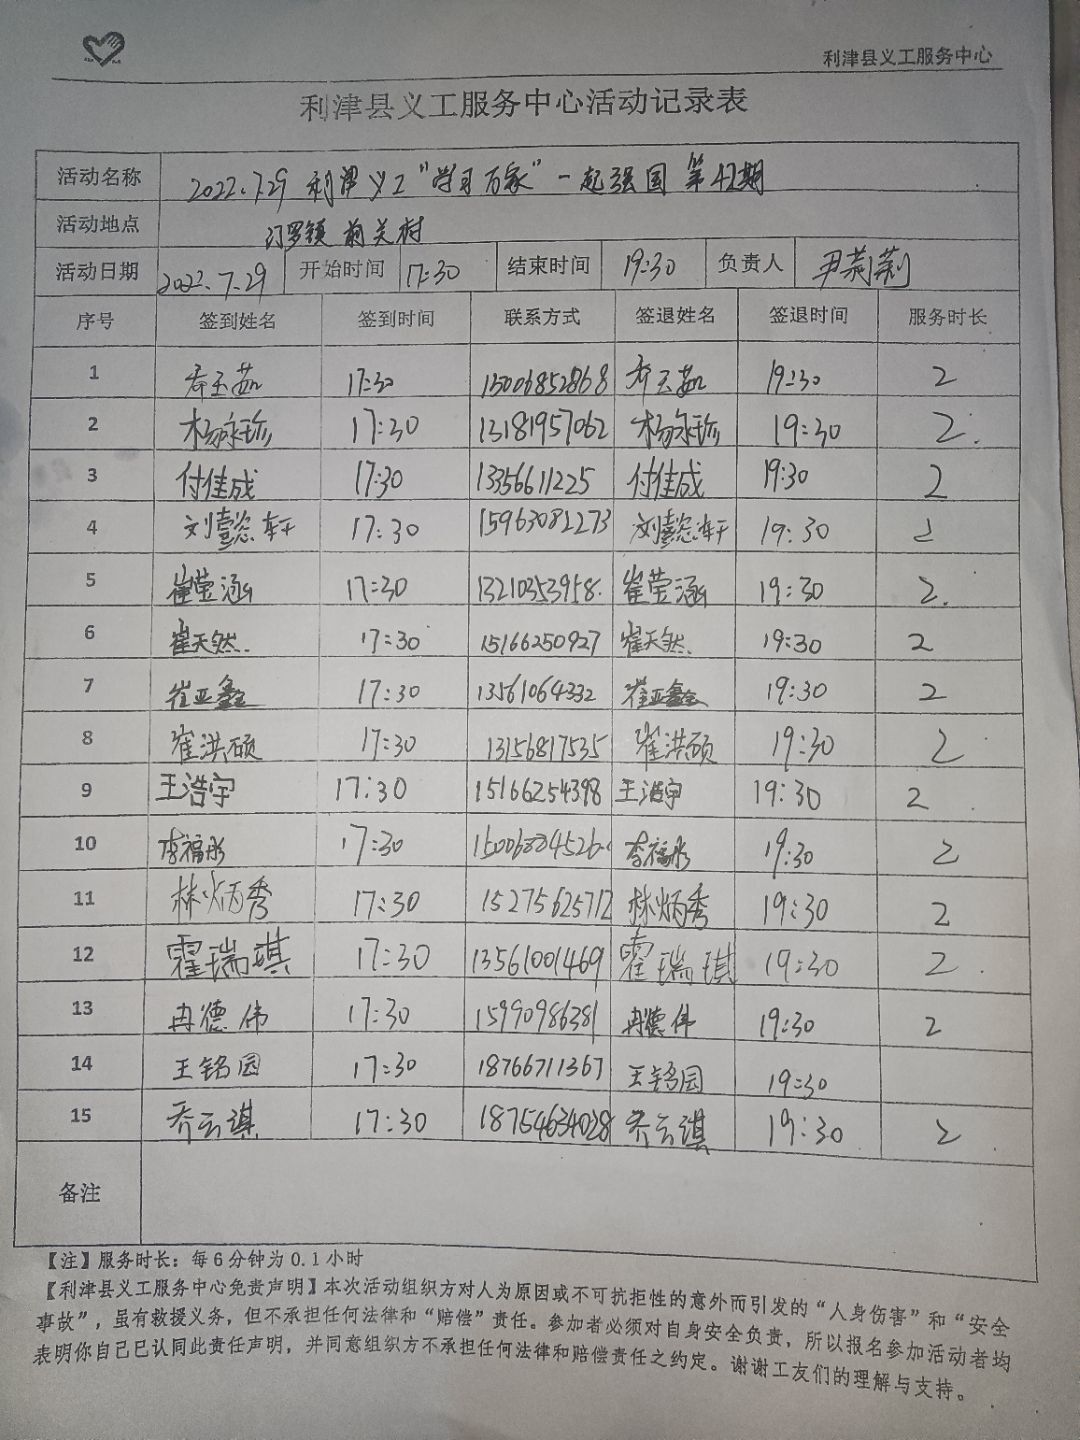 利津县义工服务中心
利津县义工服务中心活动记录表
活动名称 2022.7.29 利津义工“学习百家”一起强国 第42期
活动地点 汀罗镇 前关村
活动日期 2022.7.29 开始时间 17:30 结束时间 19:30 负责人 尹荊荊
序号 签到姓名 签到时间 联系方式 签退姓名 签退时间 服务时长
1 乔玉茹 17:30 15006852868 乔玉茹 19:30 2
2 杨永珍 17:30 13181957062 杨永珍 19:30 2.
3 付佳成 17:30 13356611225 付佳成 19:30 2
4 刘懿宸轩 17:30 15963082273 刘懿宸轩 19:30 2
5 崔莹涵 17:30 13210353958. 崔莹涵 19:30 2.
6 翟天然. 17:30 15166250927 翟天然. 19:30 2
7 崔亚鑫 17:30 13561064332 崔亚鑫 19:30 2
8 崔洪硕 17:30 13156817535 崔洪硕 19:30 2
9 王浩宇 17:30 15166254398 王浩宇 19:30 2
10 李福彤 17:30 李福彤 19:30 2
11 林炳秀 17:30 15275625712 林炳秀 19:30 2
12 霍瑞琪 17:30 13561001469 霍瑞琪 19:30 2
13 冉德伟 17:30 15990986381 冉德伟 19:30 2
14 王铭园 17:30 18766711367 王铭园 19:30
15 乔云淇 17:30 18754634028 乔云淇 19:30 2
备注
【注】服务时长：每6分钟为0.1小时
【利津县义工服务中心免责声明】本次活动组织方对人为原因或不可抗拒性的意外而引发的“人身伤害”和“安全
事故”，虽有救援义务，但不承担任何法律和“赔偿”责任。参加者必须对自身安全负责，所以报名参加活动者均
表明你自己已认同此责任声明，并同意组织方不承担任何法律和赔偿责任之约定。谢谢工友们的理解与支持。